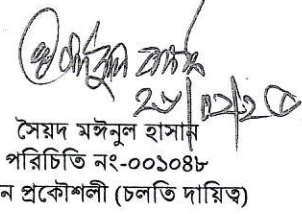 সৈয়দ মঈনুল হাসান
পরিচিতি নং-০০১০৪৮
ন প্রকৌশলী (চলতি দায়িত্ব)